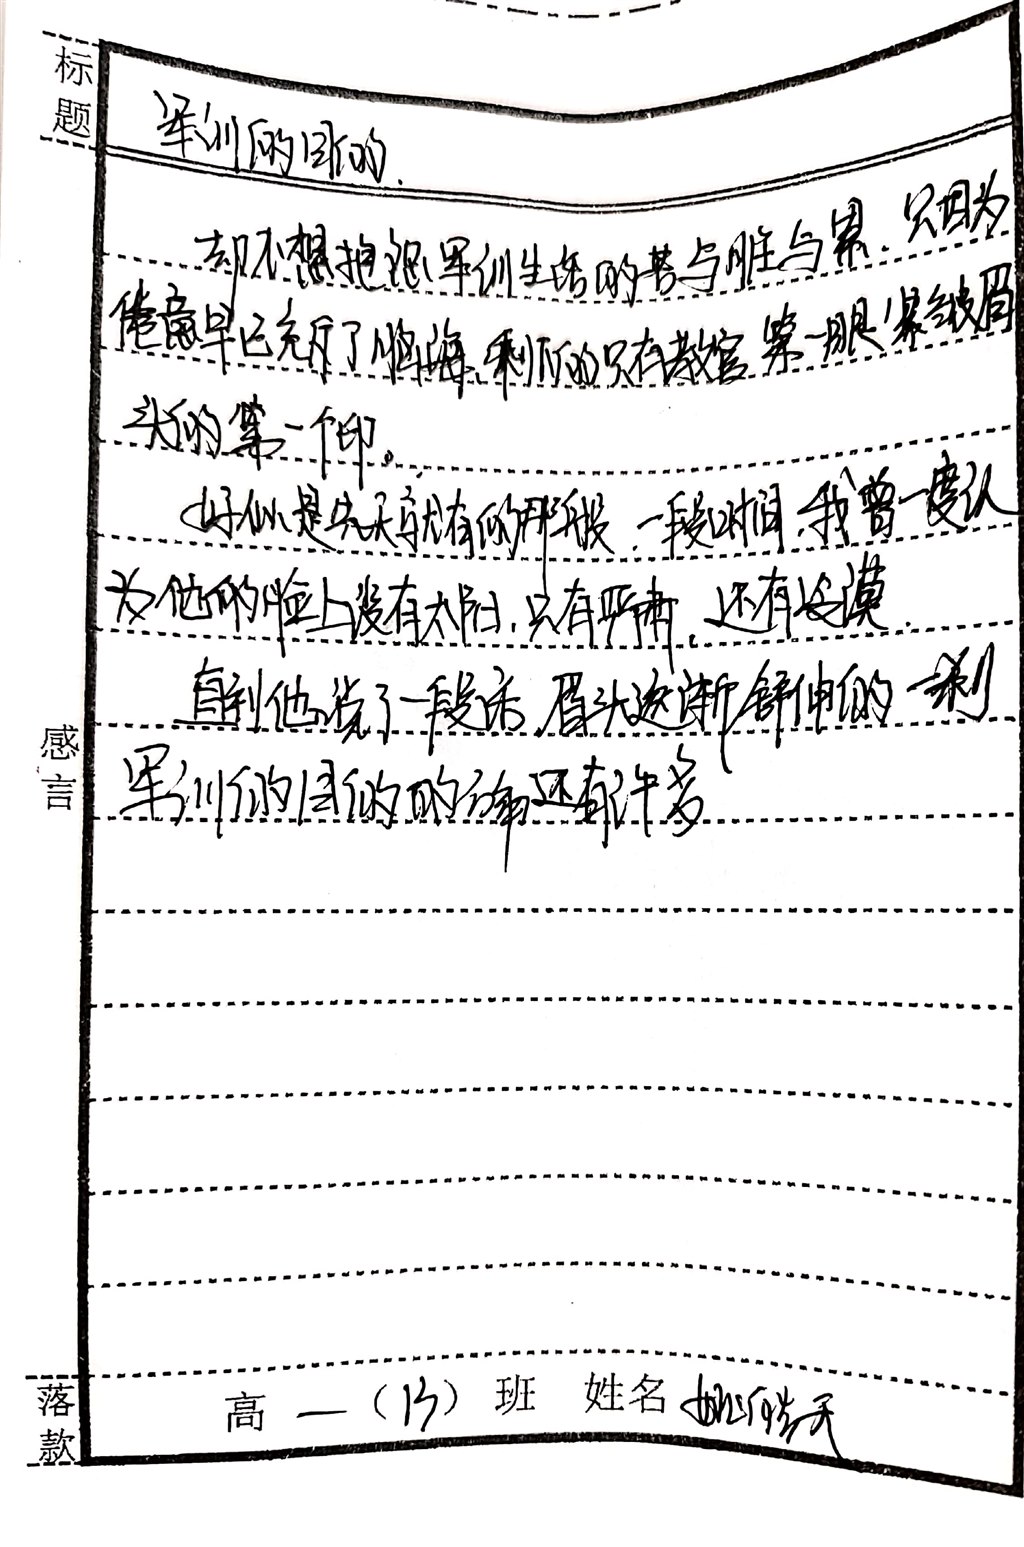 标题
军训的目的.
却不想抱怨军训生活的苦与脏与累.只因为
倦意早已充斥了脑海,剩下的只有教官第一眼紧皱眉
头的第一个印。
好似是先天就有的那般,一段时间,我曾一度认
为他的脸上没有太阳,只有严肃,还有冷漠.
直到他说了一段话,眉头逐渐舒伸的一刹
军训的目的的分毫还有许多
感言
落款
高一(13)班 姓名